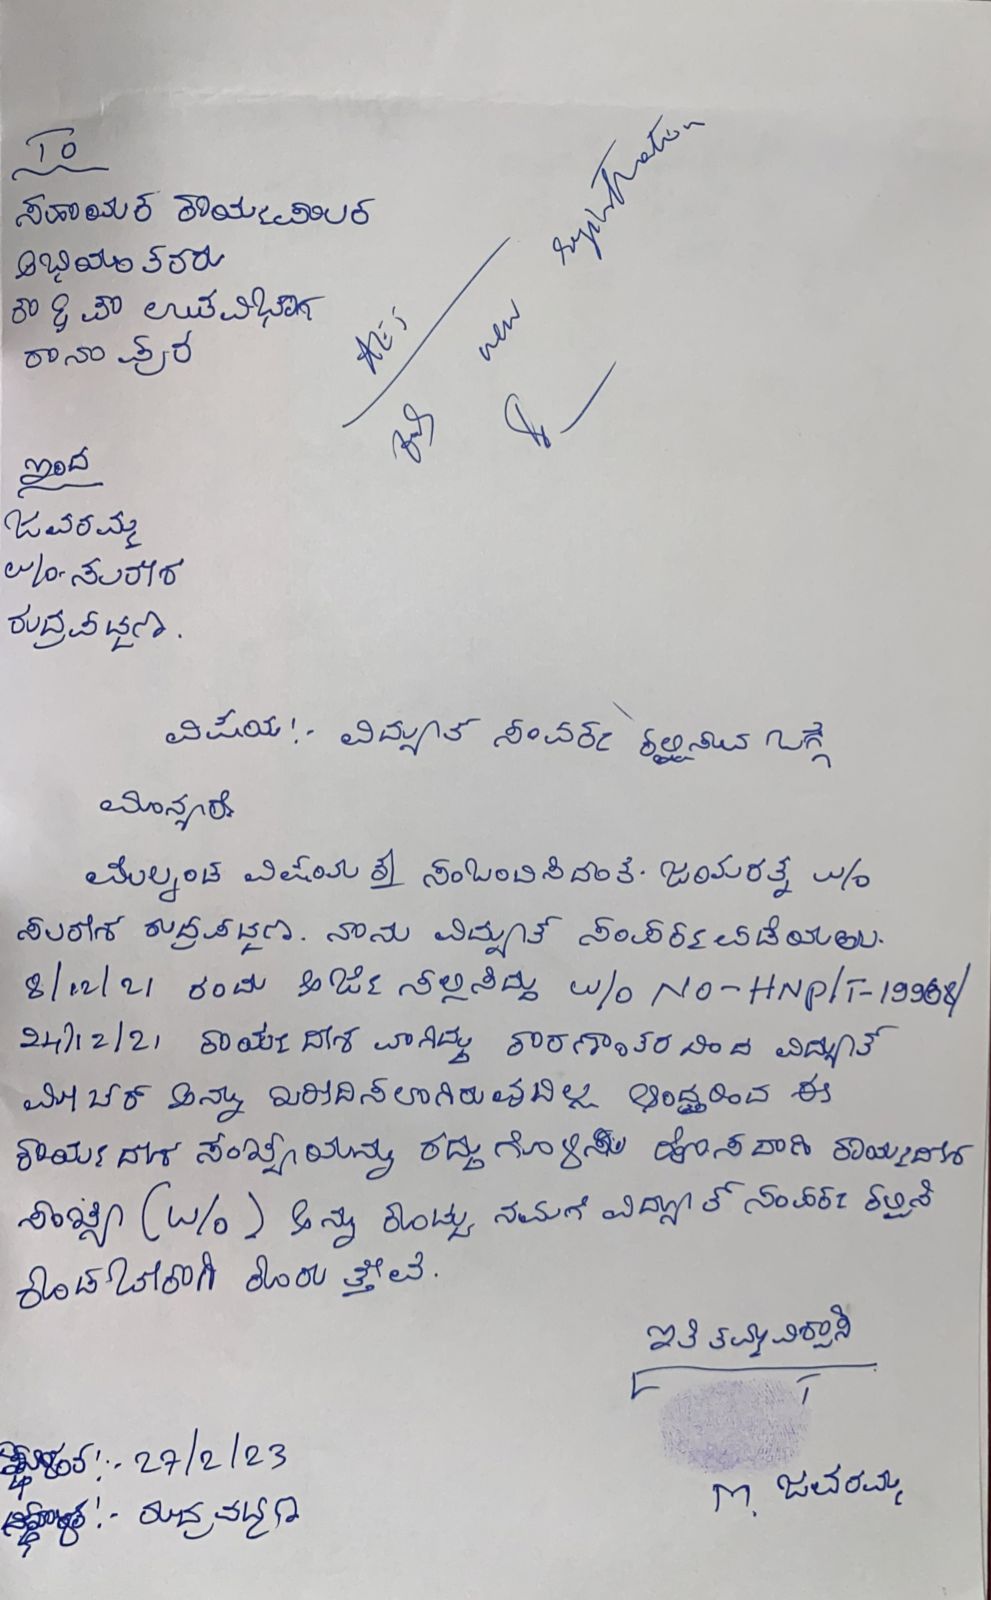 To
ಸಹಾಯಕ ಕಾರ್ಯಪಾಲಕ
ಅಭಿಯಂತರರು
ಕಾ ಮತ್ತು ಪಾ ಉಪವಿಭಾಗ
AEJ
new registration
ಇಂದ
ಜವರಮ್ಮ
w/o. ಸುರೇಶ
ರುದ್ರಪಟ್ಟಣ.
ವಿಷಯ:- ವಿದ್ಯುತ ಸಂಪರ್ಕ ಕಲ್ಪಿಸುವ ಬಗ್ಗೆ
ಮಾನ್ಯರೆ
ಮೇಲ್ಕಂಡ ವಿಷಯಕ್ಕೆ ಸಂಬಂಧಿಸಿದಂತೆ. w/o
ಸುರೇಶ ರುದ್ರಪಟ್ಟಣ. ನಾನು ವಿದ್ಯುತ್ ಸಂಪರ್ಕ ಪಡೆಯಲು.
8/12/21 ರಂದು ಅರ್ಜಿ ಸಲ್ಲಿಸಿದ್ದು w/o NO-HNP/T-19968/
24/12/21 ಕಾರ್ಯದೇಶ ವಾಗಿದ್ದು ಕಾರಣಾಂತರದಿಂದ ವಿದ್ಯುತ್
ಮೀಟರ್ ಅನ್ನು ಖರೀದಿಸಲಾಗಿರುವುದಿಲ್ಲ ಆದ್ದರಿಂದ ಈ
ಕಾರ್ಯದೇಶ ಸಂಖ್ಯೆಯನ್ನು ರದ್ದುಗೊಳ್ಳಿಸಿ ಹೊಸದಾಗಿ ಕಾರ್ಯದೇಶ
ಸಂಖ್ಯೆ (w/o) ಅನ್ನು ಕೊಟ್ಟು ನಮಗೆ ವಿದ್ಯುತ್ ಸಂಪರ್ಕ ಕಲ್ಪಿಸಿ
ಕೊಡಬೇಕಾಗಿ ಕೋರುತ್ತೇವೆ.
ಇತಿ ತಮ್ಮ ವಿಶ್ವಾಸಿ
:- 27/2/23
:- ರುದ್ರಪಟ್ಟಣ
M. ಜವರಮ್ಮ